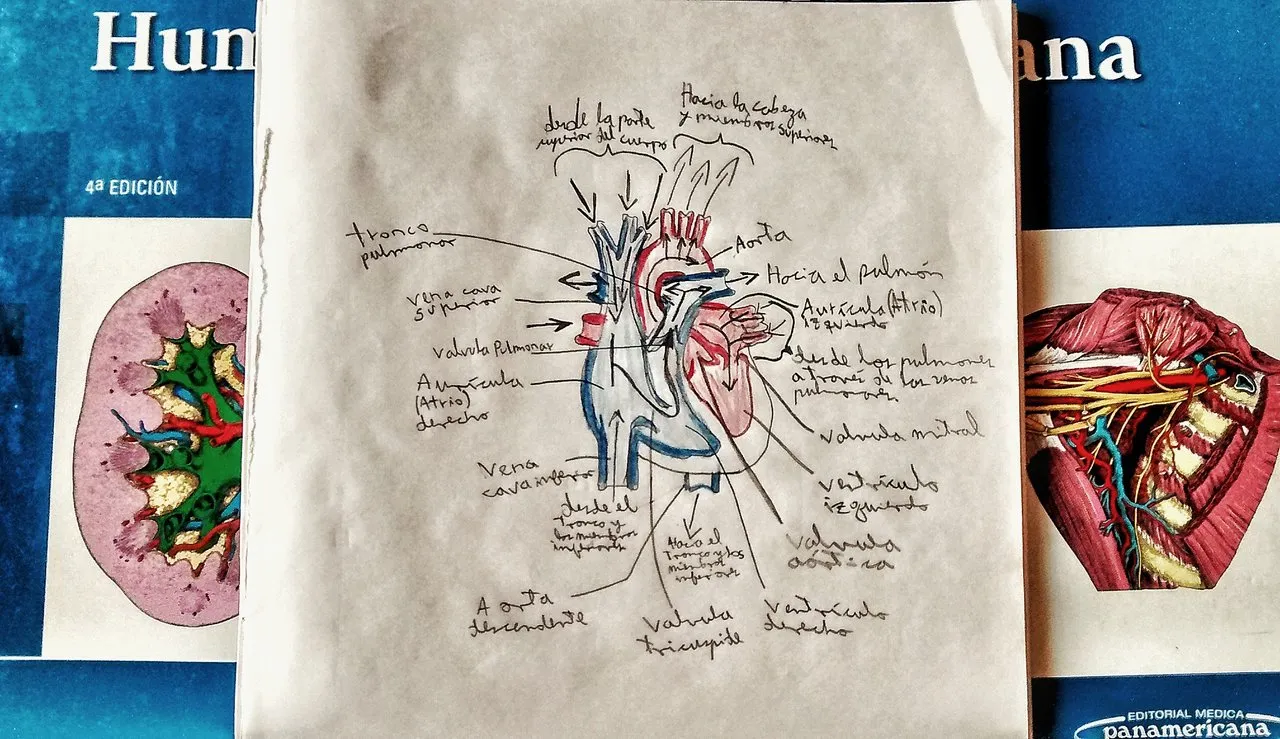 Hum
ana
4ª EDICIÓN
desde la parte
superior del cuerpo
Hacia la cabeza
y miembros superiores
tronco
pulmonar
Aorta
Hacia el pulmón
vena cava
superior
Aurícula (Atrio)
izquierdo
valvula Pulmonar
desde los pulmones
a través de las venas
pulmonares
Aurícula
(Atrio)
derecho
valvula mitral
Vena
cava inferior
ventrículo
izquierdo
desde el
Tronco y
los miembros
inferiores
Hacia el
Tronco y los
miembros
inferiores
valvula
aórtica
Aorta
descendente
valvula
tricuspide
ventrículo
derecho
EDITORIAL MEDICA
panamericana